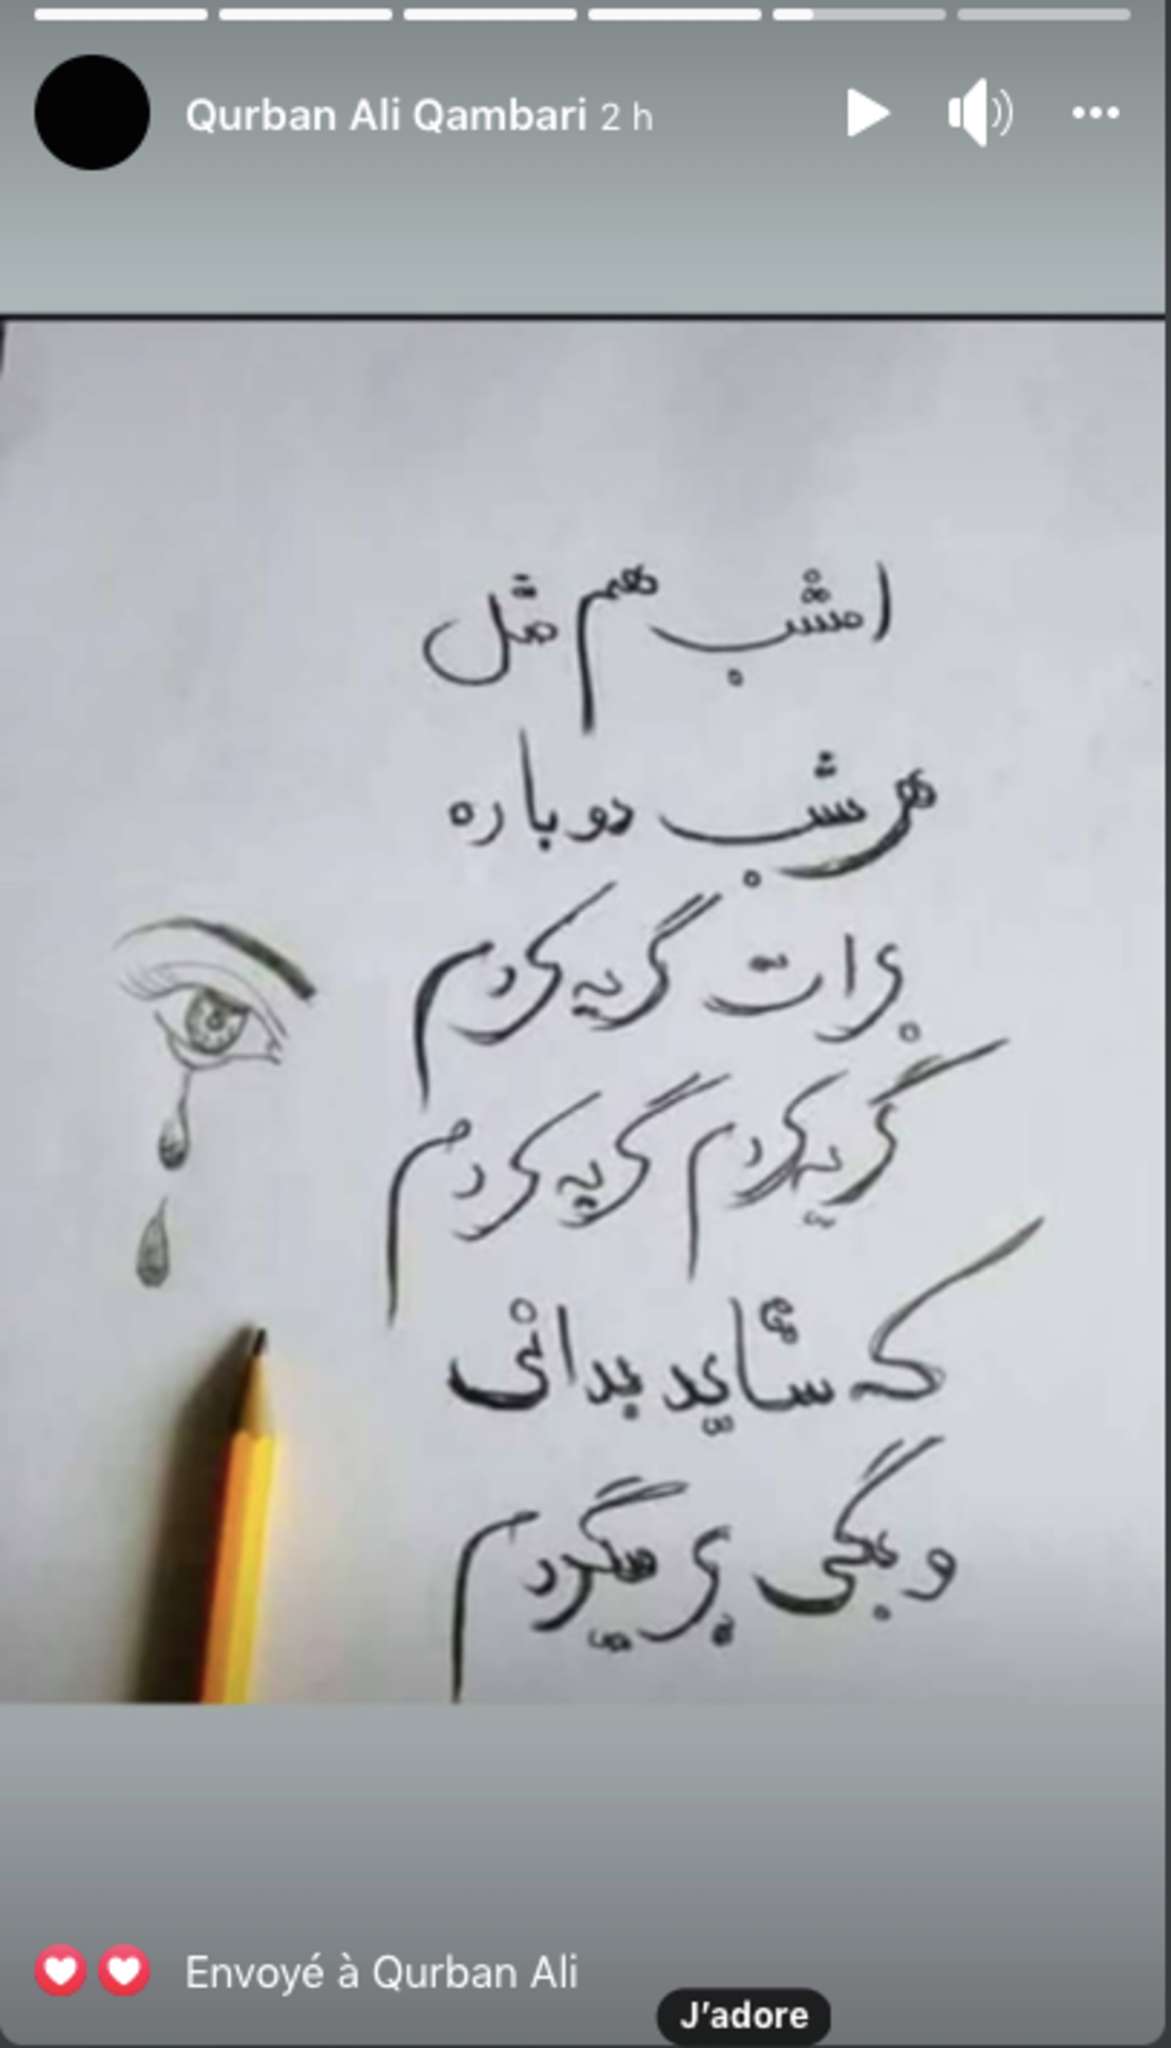 Qurban Ali Qambari 2 h
امشب هم مثل
هر شب دوباره
برات گریه کردم
گریه کردم گریه کردم
که شاید بدانی
و بگی بر میگردم
Envoyé à Qurban Ali
J'adore